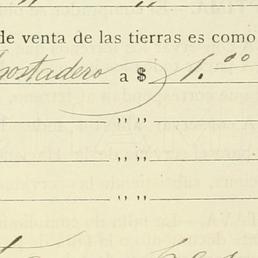 de venta de las tierras es como
gostadero a $ 1.00
" "
" "
" "